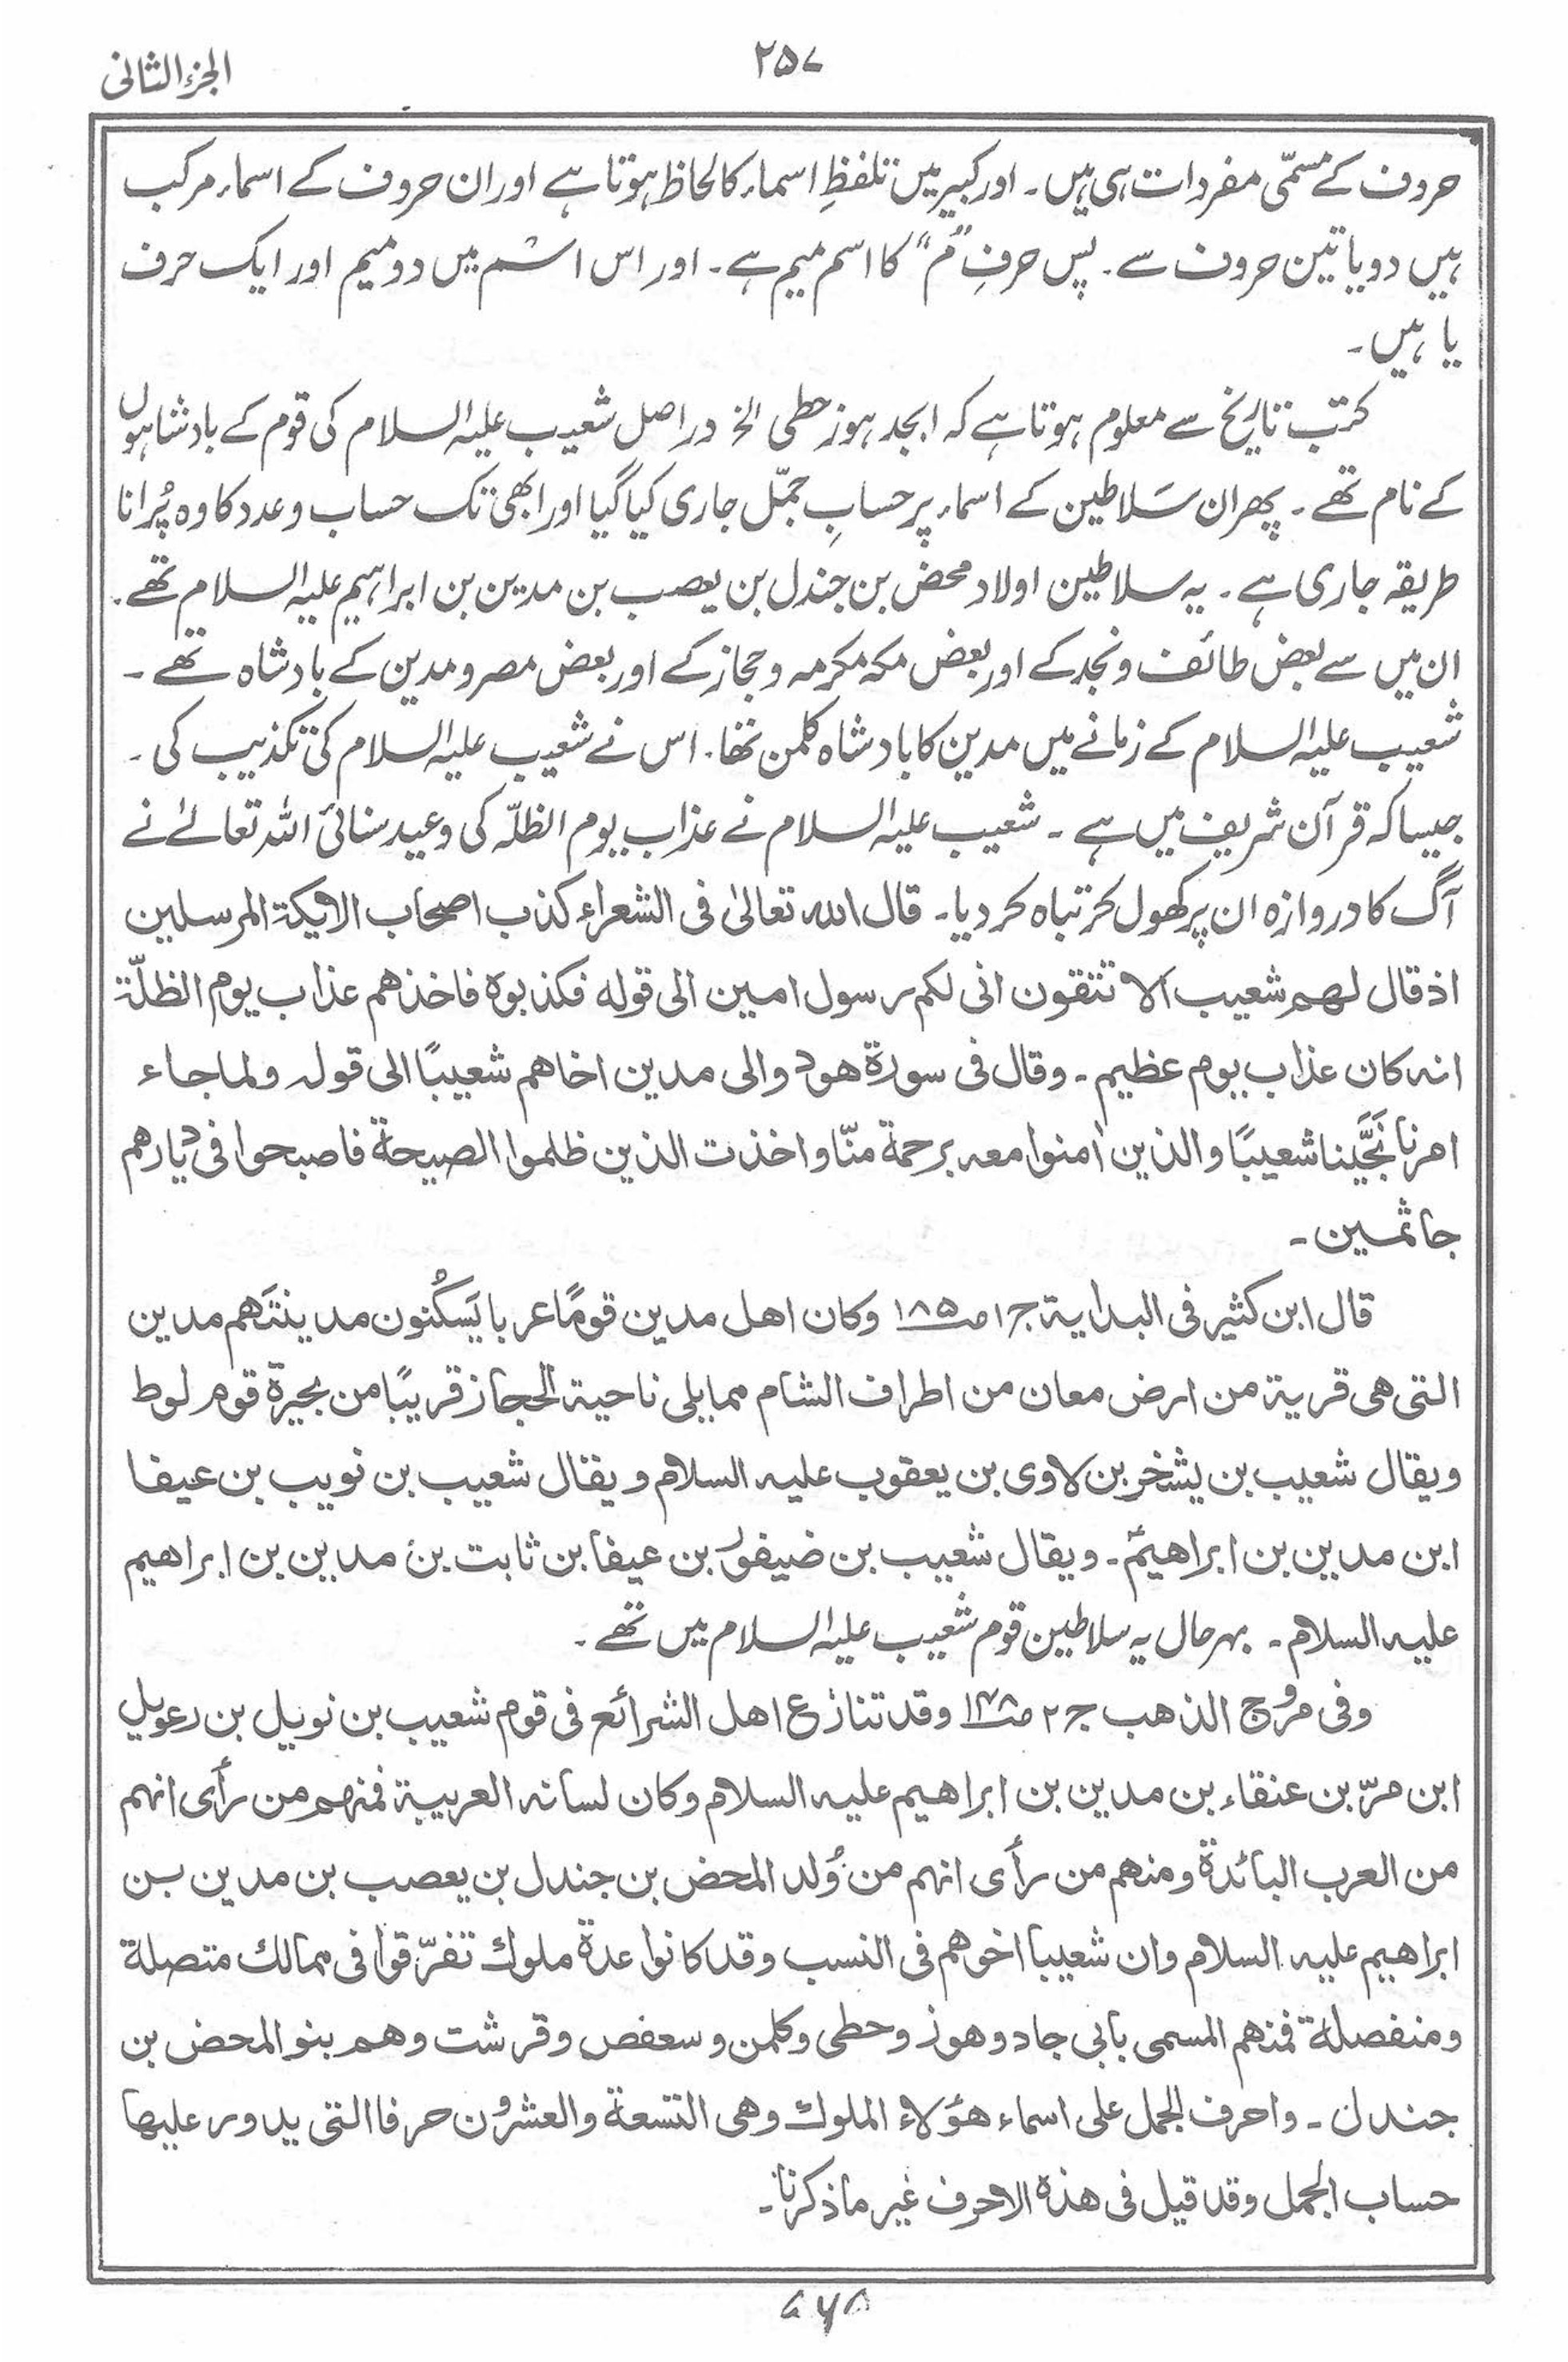 الجزء الثانی
۲۵۷
حروف کے مسمّی مفردات ہی ہیں۔ اور کبیر میں تلفظِ اسماء کا لحاظ ہوتا ہے اور ان حروف کے اسماء مرکب
ہیں دو یا تین حروف سے۔ پس حرفِ ”م“ کا اسم میم ہے۔ اور اس اسم میں دو میم اور ایک حرف
یا ہیں۔
کتب تاریخ سے معلوم ہوتا ہے کہ ابجد ہوز حطی الخ دراصل شعیب علیہ السلام کی قوم کے بادشاہوں
کے نام تھے۔ پھر ان سَلاطین کے اسماء پر حسابِ جمّل جاری کیا گیا اور ابھی تک حساب و عدد کا وہ پُرانا
طریقہ جاری ہے۔ یہ سلاطین اولاد محض بن جندل بن یعصب بن مدین بن ابراہیم علیہ السلام تھے۔
ان میں سے بعض طائف و نجد کے اور بعض مکہ مکرمہ و حجاز کے اور بعض مصر و مدین کے بادشاہ تھے۔
شعیب علیہ السلام کے زمانے میں مدین کا بادشاہ کلمن تھا۔ اس نے شعیب علیہ السلام کی تکذیب کی۔
جیسا کہ قرآن شریف میں ہے۔ شعیب علیہ السلام نے عذاب یوم الظلّہ کی وعید سنائی اللہ تعالےٰ نے
آگ کا دروازہ ان پر کھول کر تباہ کر دیا۔ قال اللہ تعالیٰ فی الشعراء کذب اصحاب الایکۃ المرسلین
اذ قال لھم شعیب الا تتقون انی لکم رسول امین الی قولہ فکذبوہ فاخذھم عذاب یوم الظلّۃ
انہ کان عذاب یوم عظیم۔ وقال فی سورۃ ھود والی مدین اخاھم شعیبًا الی قولہ ولما جاء
امرنا نَجَّینا شعیبًا والذین اٰمنوا معہ برحمۃ منّا واخذت الذین ظلموا الصیحۃ فاصبحوا فی دیارھم
جاثمین۔
قال ابن کثیر فی البدایۃ ج۱ ص۱۸۵ وکان اھل مدین قومًا عربا یَسکُنون مدینتَھم مدین
التی ھی قریۃ من ارض معان من اطراف الشام مما یلی ناحیۃ الحجاز قریبًا من بحیرۃ قوم لوط
ویقال شعیب بن یشخر بن لاوی بن یعقوب علیہ السلام ویقال شعیب بن نویب بن عیفا
ابن مدین بن ابراھیمؑ۔ ویقال شعیب بن ضیفور بن عیفا بن ثابت بن مدین بن ابراھیم
علیہ السلام۔ بہر حال یہ سلاطین قوم شعیب علیہ السلام میں تھے۔
وفی مروج الذھب ج۲ وقد تنازع اھل الشرائع فی قوم شعیب بن نویل بن رعویل
ابن مرّ بن عنقاء بن مدین بن ابراھیم علیہ السلام وکان لسانہ العربیۃ فمنھم من رأی انھم
من العرب البائدۃ ومنھم من رأی انھم من وُلد المحض بن جندل بن یعصب بن مدین بن
ابراھیم علیہ السلام وان شعیبا اخوھم فی النسب وقد کانوا عدۃ ملوک تفرّقوا فی ممالک متصلۃ
ومنفصلۃ فمنھم المسمی بابی جاد وھوز وحطی وکلمن وسعفص وقرشت وھم بنو المحض بن
جندل۔ واحرف الجمل علی اسماء ھؤلاء الملوک وھی التسعۃ والعشرون حرفا التی یدور علیھا
حساب الجمل وقد قیل فی ھذہ الاحرف غیر ما ذکرنا۔